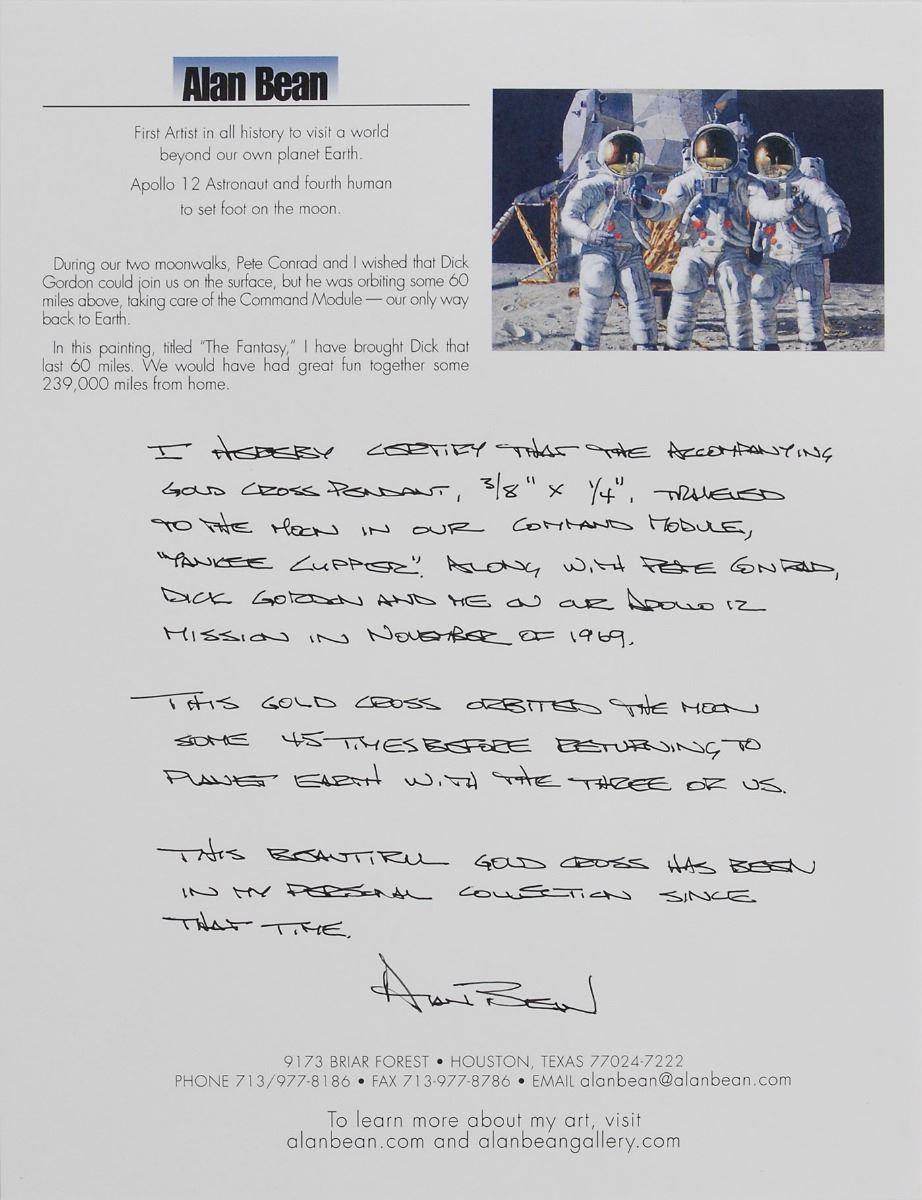 Alan Bean
First Artist in all history to visit a world
beyond our own planet Earth.
Apollo 12 Astronaut and fourth human
to set foot on the moon.
During our two moonwalks, Pete Conrad and I wished that Dick
Gordon could join us on the surface, but he was orbiting some 60
miles above, taking care of the Command Module — our only way
back to Earth.
In this painting, titled "The Fantasy," I have brought Dick that
last 60 miles. We would have had great fun together some
239,000 miles from home.
I HEREBY CERTIFY THAT THE ACCOMPANYING
GOLD CROSS PENDANT, 3/8" X 1/4", TRAVELED
TO THE MOON IN OUR COMMAND MODULE,
"YANKEE CLIPPER". ALONG WITH PETE CONRAD,
DICK GORDON AND ME ON OUR APOLLO 12
MISSION IN NOVEMBER OF 1969.
THIS GOLD CROSS ORBITED THE MOON
SOME 45 TIMES BEFORE RETURNING TO
PLANET EARTH WITH THE THREE OF US.
THIS BEAUTIFUL GOLD CROSS HAS BEEN
IN MY PERSONAL COLLECTION SINCE
THAT TIME.
Alan Bean
9173 BRIAR FOREST • HOUSTON, TEXAS 77024-7222
PHONE 713/977-8186 • FAX 713-977-8786 • EMAIL alanbean@alanbean.com
To learn more about my art, visit
alanbean.com and alanbeangallery.com